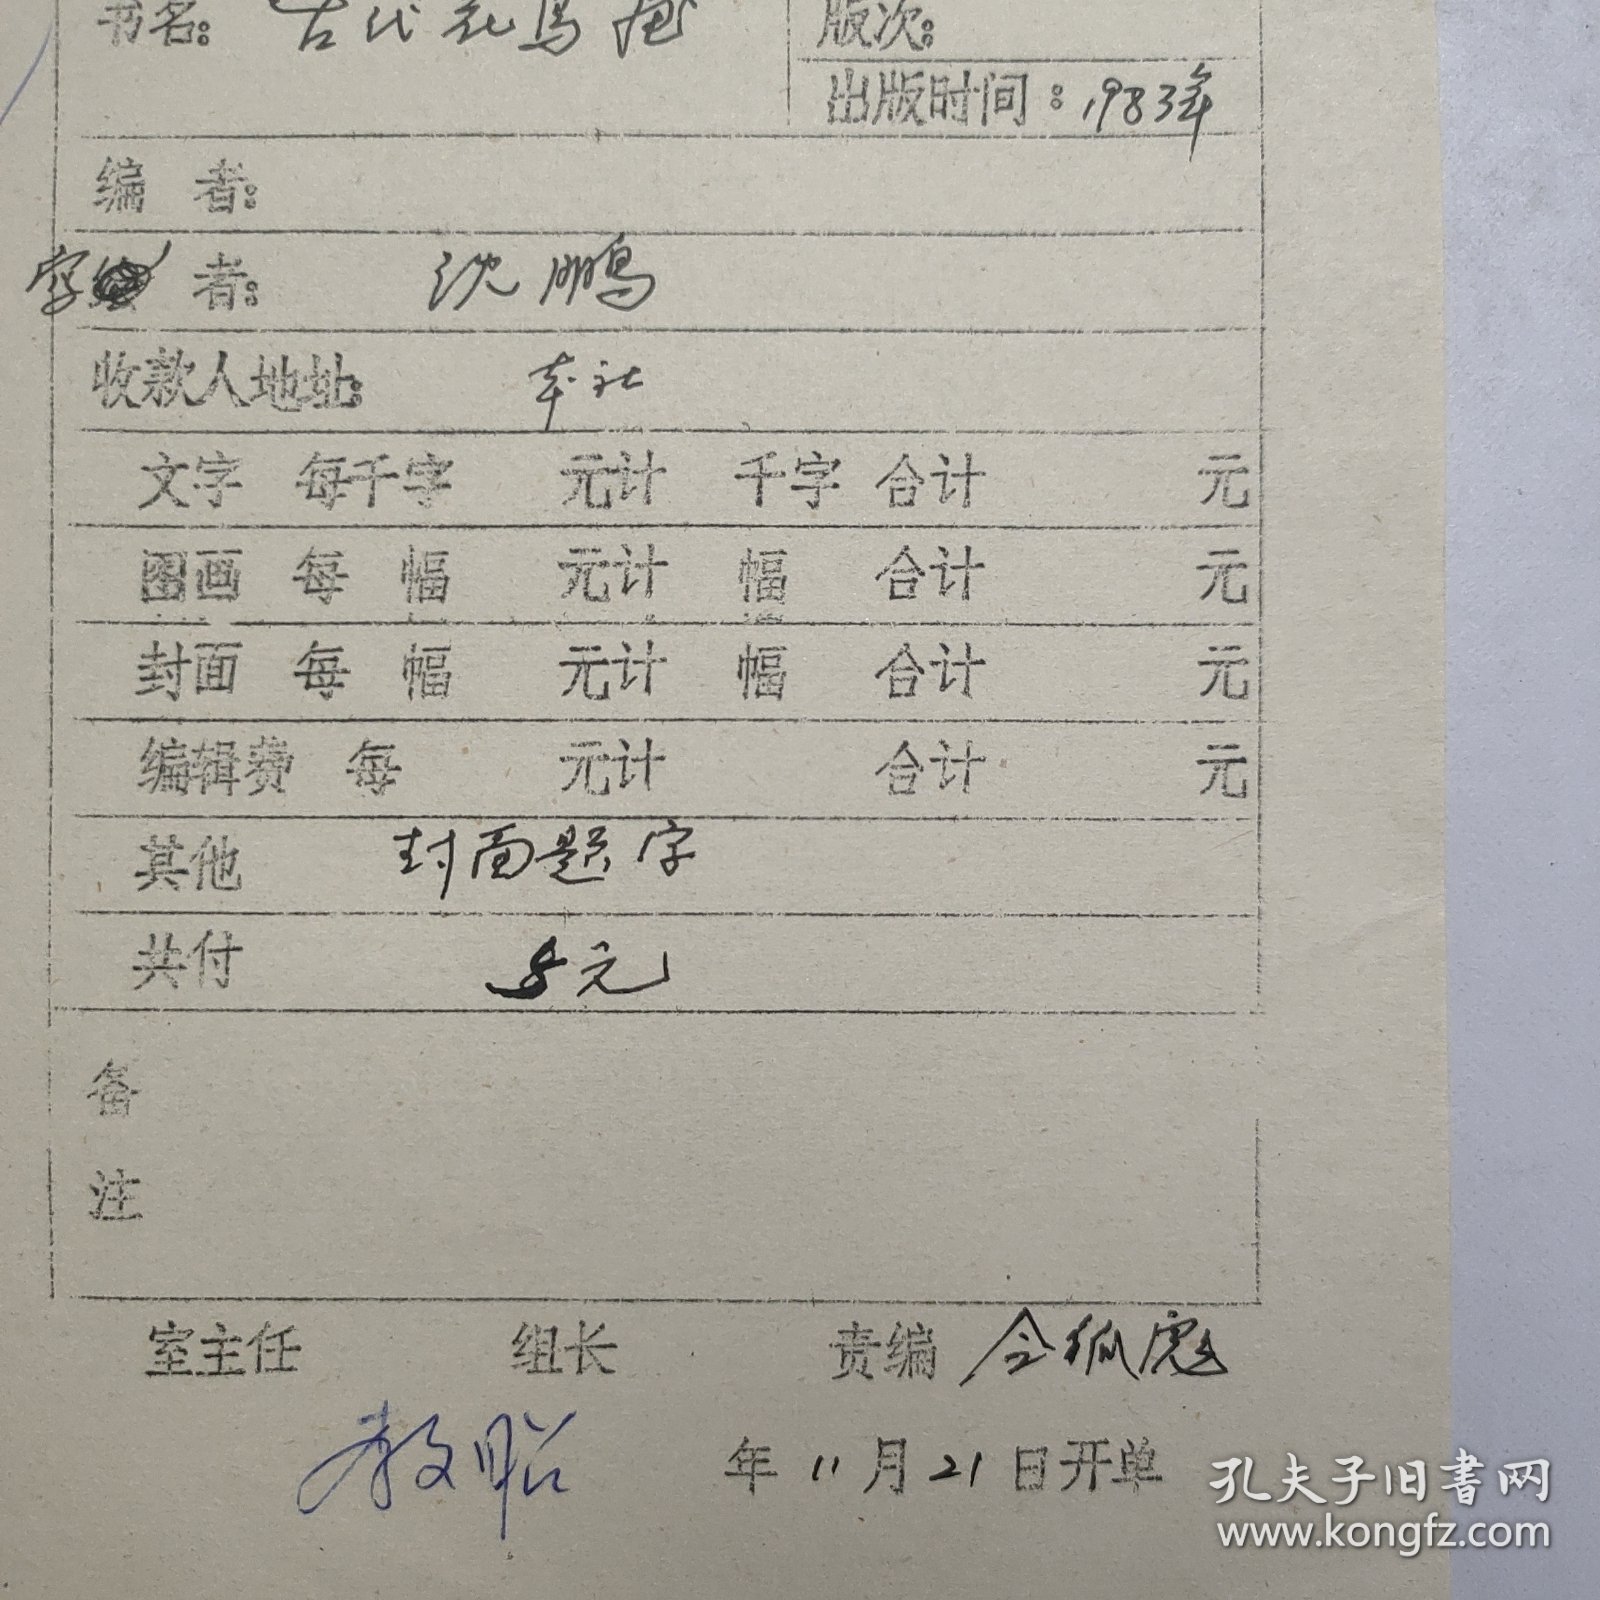 书名: 古代花鸟画
版次:
出版时间: 1983年
编 者:
字 者: 沈鹏
收款人地址: 本社
文字 每千字 元计 千字 合计 元
图画 每 幅 元计 幅 合计 元
封面 每 幅 元计 幅 合计 元
编辑费 每 元计 合计 元
其他 封面题字
共付 8元
备
注
室主任 组长 责编 令狐彪
年 11月21日开单
孔夫子旧书网
www.kongfz.com